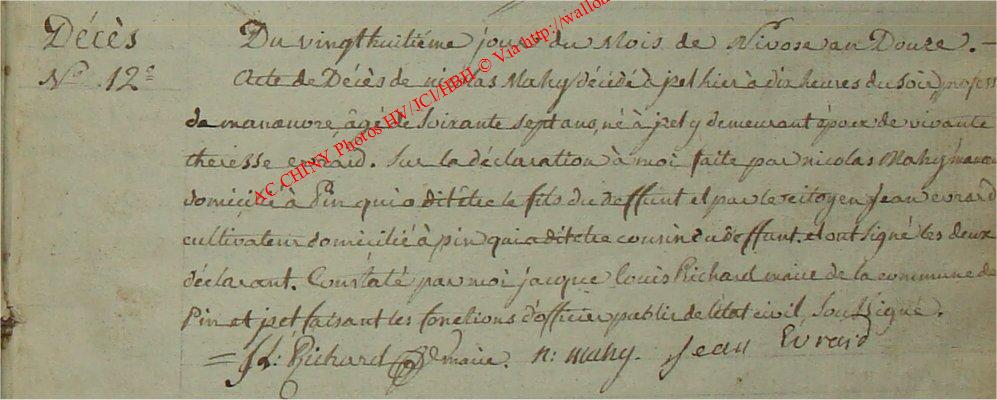 Décès
Du vingthuitiéme jour du Mois de Nivose an Douze. —
No. 12e
Acte de Décès de nicolas Mahy décédé à jzel hier à dix heures du soir, profess
de manœuvre, âgé de Soixante sept ans, né à jzel y demeurant époux de vivante
theresse evrard. Sur la déclaration à moi faite par nicolas Mahy manœu
domicilié à Pin qui a dit être le fils du deffunt et par le citoyen Jean evrard
cultivateur domicilié à pin qui a dit etre cousin du Deffunt. et ont signé les deux
déclarant. Constaté par moi jacque Louis Richard maire de la commune de
Pin et jzel faisant les fonctions d'officier public de l'état civil, Soussigné.
= J L: Richard maire. n: mahy. Jean Evrard
AC CHINY Photos HV/JCl/HBH © Via http://wallon